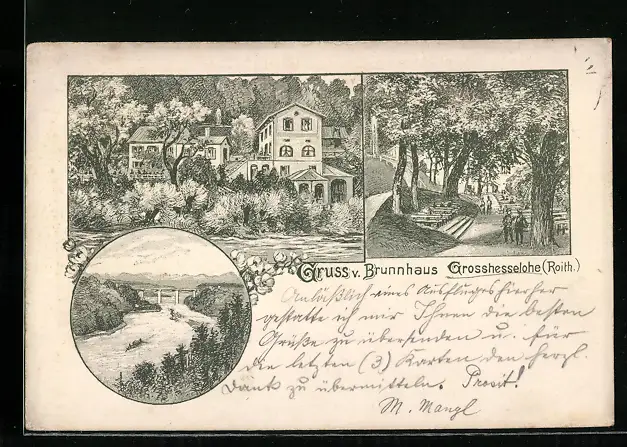 Gruss v. Brunnhaus Grosshesselohe (Roith.)
Anläßlich eines Ausfluges hierher
gestatte ich mir Ihnen die besten
Grüße zu übersenden u. für
die letzten (3) Karten den herzl.
Dank zu übermitteln. Prosit!
M. Mangl